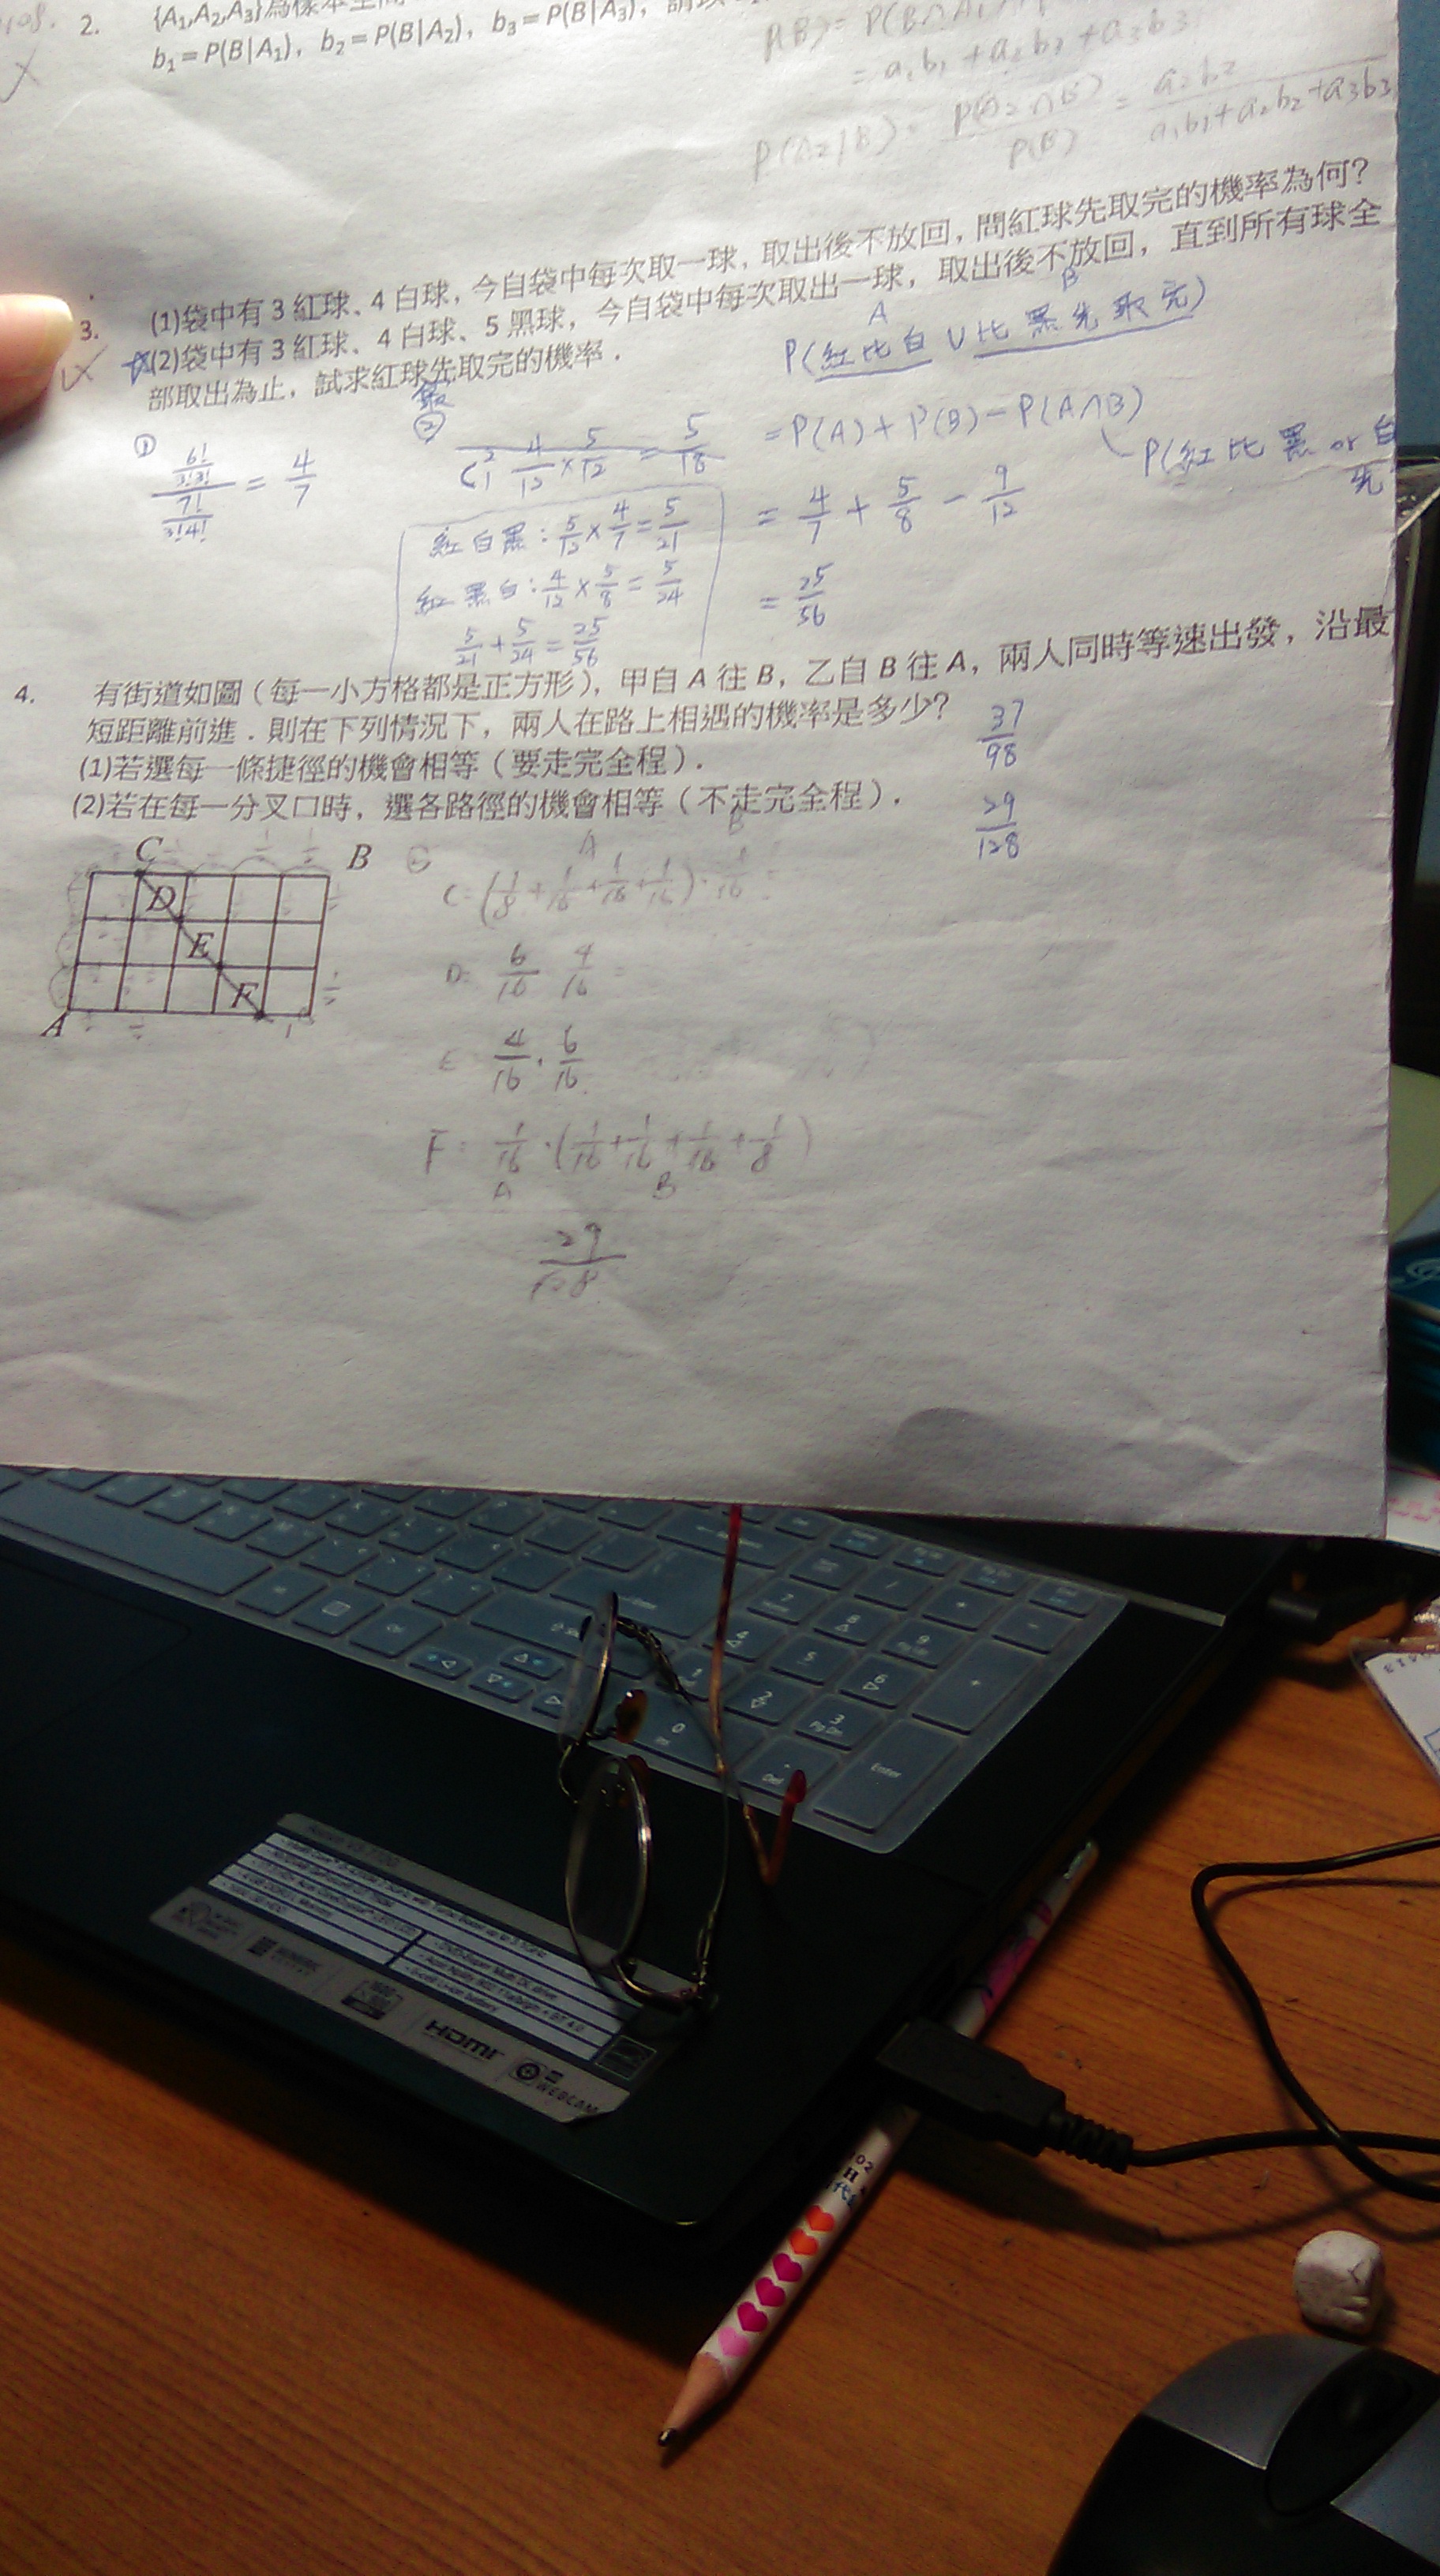 2. {A₁,A₂,A₃}為樣本空間
b₁=P(B|A₁), b₂=P(B|A₂), b₃=P(B|A₃),
P(B)= P(B∩A₁
= a₁b₁+a₂b₂+a₃b₃
P(A₂|B)= P(A₂∩B)/P(B) = a₂b₂/(a₁b₁+a₂b₂+a₃b₃
3. (1)袋中有3紅球、4白球,今自袋中每次取一球,取出後不放回,問紅球先取完的機率為何?
(2)袋中有3紅球、4白球、5黑球,今自袋中每次取出一球,取出後不放回,直到所有球全
部取出為止,試求紅球先取完的機率.
最
① (6!/3!3!)/(7!/3!4!) = 4/7
② C²₁ 4/12×5/12 = 5/18
紅白黑:5/12×4/7=5/21
紅黑白:4/12×5/8=5/24
5/21+5/24=25/56
A B
P(紅比白∪比黑先取完)
=P(A)+P(B)-P(A∩B)
P(紅比黑or白
先
= 4/7+5/8-9/12
= 25/56
4. 有街道如圖(每一小方格都是正方形),甲自A往B,乙自B往A,兩人同時等速出發,沿最
短距離前進.則在下列情況下,兩人在路上相遇的機率是多少?
(1)若選每一條捷徑的機會相等(要走完全程).
(2)若在每一分叉口時,選各路徑的機會相等(不走完全程).
37/98
29/128
C B
D
E
F
A
A B
C: (1/8+1/16+1/16+1/16)·1/16=
D: 6/16 4/16 =
E 4/16·6/16
F: 1/16·(1/16+1/16+1/16+1/8)
A B
29/128
HDMI
WEBCAM
Enter